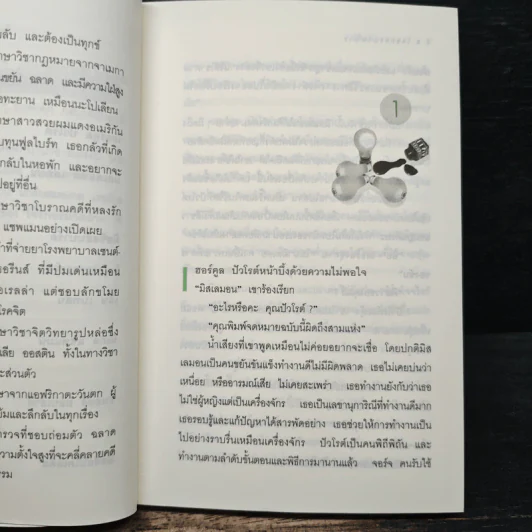 ลับ และต้องเป็นทุกข์
ษาวิชากฎหมายจากจาเมกา
ขยัน ฉลาด และมีความใฝ่สูง
อทะยาน เหมือนนะโปเลียน
ษาสาวสวยผมแดงอเมริกัน
บทุนฟูลไบร์ท เธอกลัวที่เกิด
กลับในหอพัก และอยากจะ
ปอยู่ที่อื่น
ษาวิชาโบราณคดีที่หลงรัก
แชพแมนอย่างเปิดเผย
ที่จ่ายยาโรงพยาบาลเซนต์-
อรีนส์ ที่มีปมเด่นเหมือน
เรลล่า แต่ชอบลักขโมย
โรคจิต
ษาวิชาจิตวิทยารูปหล่อซึ่ง
เลีย ออสติน ทั้งในทางวิชา
ะส่วนตัว
ษาจากแอฟริกาตะวันตก ผู้
มและลึกลับในทุกเรื่อง
ารวจที่ชอบถ่อมตัว ฉลาด
วามตั้งใจสูงที่จะคลี่คลายคดี
รรม
1
ฮอร์คูล ปัวโรต์หน้าบึ้งด้วยความไม่พอใจ
“มิสเลมอน” เขาร้องเรียก
“อะไรหรือคะ คุณปัวโรต์ ?”
“คุณพิมพ์จดหมายฉบับนี้ผิดถึงสามแห่ง”
น้ำเสียงที่เขาพูดเหมือนไม่ค่อยอยากจะเชื่อ โดยปกติมิส
เลมอนเป็นคนขยันขันแข็งทำงานดีไม่มีผิดพลาด เธอไม่เคยบ่นว่า
เหนื่อย หรืออารมณ์เสีย ไม่เคยสะเพร่า เธอทำงานยังกับว่าเธอ
ไม่ใช่ผู้หญิงแต่เป็นเครื่องจักร เธอเป็นเลขานุการิณีที่ทำงานดีมาก
เธอรอบรู้และแก้ปัญหาได้สารพัดอย่าง เธอช่วยให้การทำงานเป็น
ไปอย่างราบรื่นเหมือนเครื่องจักร ปัวโรต์เป็นคนพิถีพิถัน และ
ทำงานตามลำดับขั้นตอนและพิธีการมานานแล้ว จอร์จ คนรับใช้